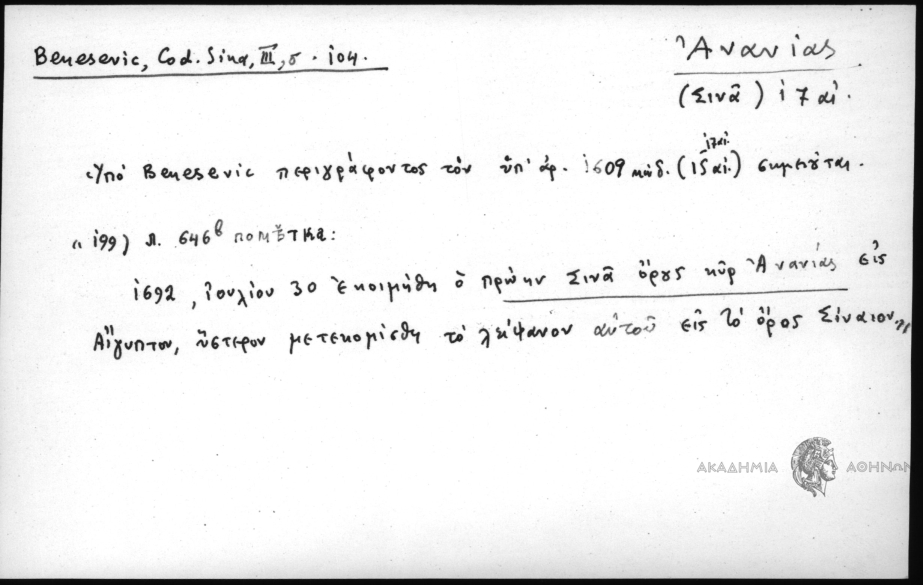 Benesevic, Cod. Sina, III, 5. 104.
Ἀνανίας
(Σινᾶ) 17 αἰ.
Ὑπό Benesevic περιγράφοντος τόν ὑπ' ἀρ. 1609 κώδ. (15 αἰ.) σημειοῦται.
17 αἰ.
" 199) л. 646б помѣтка:
1692, Ἰουλίου 30 ἐκοιμήθη ὁ πρώην Σινᾶ ὄρους κῦρ Ἀνανίας εἰς
Αἴγυπτον, ὕστερον μετεκομίσθη τό λείψανον αὐτοῦ εἰς τό ὄρος Σίναιον"
ΑΚΑΔΗΜΙΑ ΑΘΗΝΩΝ